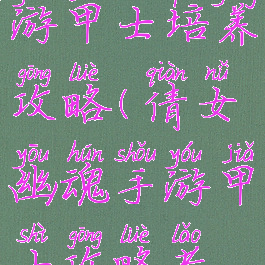 游甲士培养
gōng lüè qiàn nǚ
攻略(倩女
yōu hún shǒu yóu jiǎ
幽魂手游甲
shì gōng lüè lǎo
士攻略老